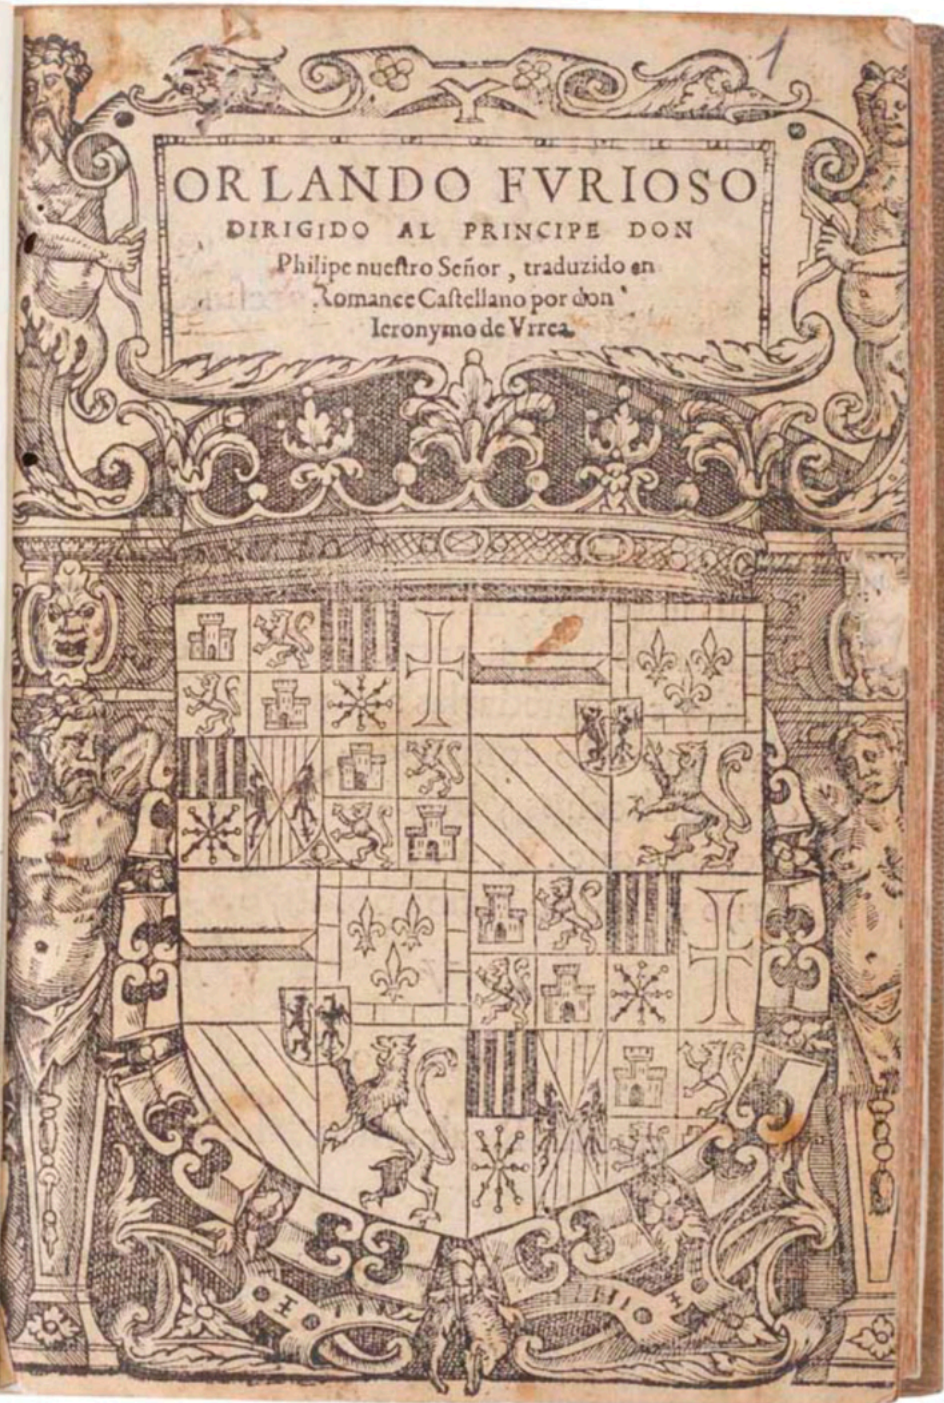 1
ORLANDO FVRIOSO
DIRIGIDO AL PRINCIPE DON
Philipe nueſtro Señor, traduzido en
Romance Caſtellano por don
Ieronymo de Vrrea.